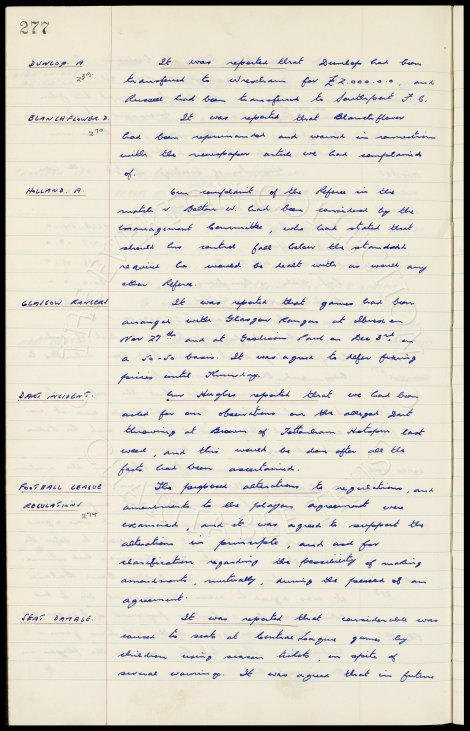 277
DUNLOP A. It was reported that Dunlop had been
259. transferred to Wrexham for £2,000.0.0, and
Russell had been transferred to Southport F.C.
BLANCHFLOWER D. It was reported that Blanchflower
270 had been reprimanded and warned in connection
with the newspaper article we had complained
of.
HOLLAND. A. Our complaint of the Referee in the
match v. Bolton W. had been considered by the
Management Committee, who had stated that
should his control fall below the standard
required he would be dealt with as would any
other Referee.
GLASGOW RANGERS It was reported that games had been
arranged with Glasgow Rangers at Ibrox on
Nov 27th and at Goodison Park on Dec 3rd on
a 50-50 basis. It was agreed to defer fixing
prices until Thursday.
DART INCIDENT. Mr Hughes reported that we had been
asked for our observations on the alleged dart
throwing at Brown of Tottenham Hotspur last
week, and this would be done after all the
facts had been ascertained.
FOOTBALL LEAGUE The proposed alterations to regulations, and
REGULATIONS amendments to the players agreement were
274 examined, and it was agreed to support the
alterations in principle, and ask for
clarification regarding the possibility of making
amendments, mutually, during the period of an
agreement.
SEAT DAMAGE. It was reported that considerable was
caused to seats at Central League games by
children using season tickets, in spite of
several warnings. It was agreed that in future